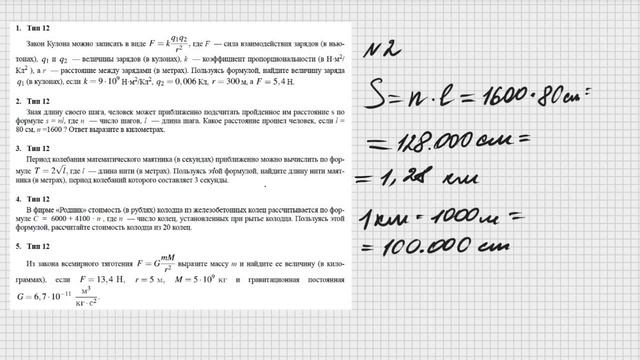 1. Тип 12
Закон Кулона можно записать в виде F = k q₁q₂/r², где F — сила взаимодействия зарядов (в нью-
тонах), q₁ и q₂ — величины зарядов (в кулонах), k — коэффициент пропорциональности (в Н·м²/
Кл²), а r — расстояние между зарядами (в метрах). Пользуясь формулой, найдите величину заряда
q₁ (в кулонах), если k = 9·10⁹ Н·м²/Кл², q₂ = 0,006 Кл, r = 300 м, а F = 5,4 Н.
2. Тип 12
Зная длину своего шага, человек может приближенно подсчитать пройденное им расстояние s по
формуле s = nl, где n — число шагов, l — длина шага. Какое расстояние прошел человек, если l =
80 см, n =1600 ? Ответ выразите в километрах.
3. Тип 12
Период колебания математического маятника (в секундах) приближенно можно вычислить по фор-
муле T = 2√l, где l — длина нити (в метрах). Пользуясь этой формулой, найдите длину нити маят-
ника (в метрах), период колебаний которого составляет 3 секунды.
4. Тип 12
В фирме «Родник» стоимость (в рублях) колодца из железобетонных колец рассчитывается по фор-
муле C = 6000 + 4100 · n , где n — число колец, установленных при рытье колодца. Пользуясь этой
формулой, рассчитайте стоимость колодца из 20 колец.
5. Тип 12
Из закона всемирного тяготения F = G mM/r² выразите массу m и найдите ее величину (в кило-
граммах), если F = 13,4 Н, r = 5 м, M = 5·10⁹ кг и гравитационная постоянная
G = 6,7·10⁻¹¹ м³/кг·с².
N2
S = n · l = 1600 · 80 см =
= 128.000 см =
= 1,28 км
1 км = 1000 м =
= 100.000 см